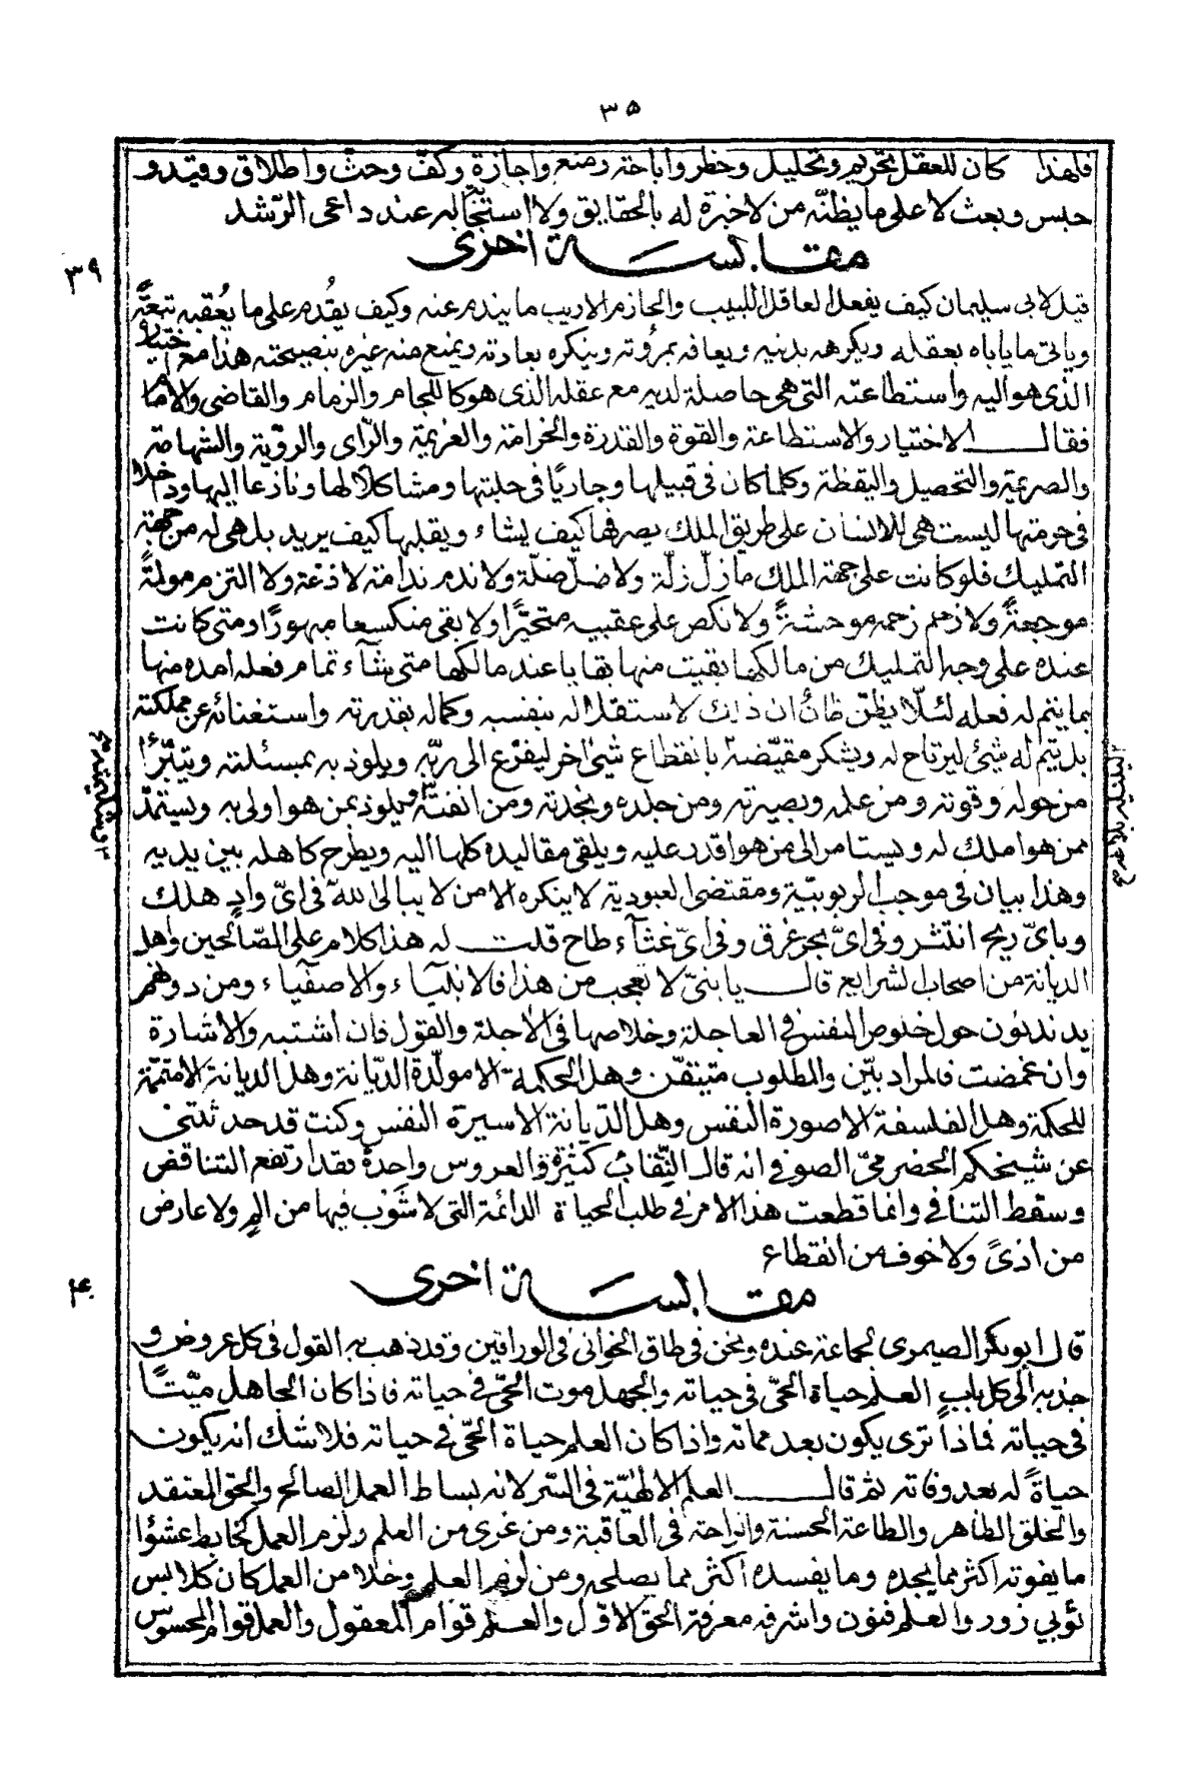 ٣٥
فلهذا كان للعقل تحريم وتحليل وحظر واباحة ومنع واجازة وكفّ وحثّ واطلاق وقيد و
حبس وبعث لا على ما يظنّه من لا خبرة له بالحقايق ولا استجابه عند داعى الرّشد
مقابسة اخرى
٣٩
قيل لابى سليمان كيف يفعل العاقل اللبيب والحازم الاريب ما يندم عنه وكيف يقُدم على ما يُعقبه تبعّة
وياتى ما ياباه بعقله ويكرهه بدينه ويعافه بمروّته وينكره بعادته ويمنع منه غيره بنصيحته هذا مع اختياره
الذى هو اليه واستطاعته التى هى حاصلة لديه مع عقله الذى هو كاللجام والزمام والقاضى والامام
فقال الاختيار والاستطاعة والقوة والقدرة والحزامة والعزيمة والرّاى والرويّة والشهامة
والصريمة والتحصيل واليقظة وكلما كان فى قبيلها وجاريًا فى حلبتها ومشاكلا لها ونازعا اليها وداخلا
فى حومتها ليست هى للانسان على طريق الملك يصرفها كيف يشاء ويقلبها كيف يريد بل هى له من جهة
التمليك فلو كانت على جهة الملك ما زلّ زلّة ولا ضلّ ضلّة ولا ندم ندامة لاذعة ولا التزم مولمةً
موجعةً ولا زحم زحمه موحشةً ولا نكص على عقبيه متحيّرًا ولا بقى منكسعا مبهورًا ومتى كانت
عنده على وجه التمليك من مالكها بقيت منها بقايا عند مالكها متى شآء تمام فعله امده منها
بما يتم له فعله لئلّا يظنّ ظانّ ان ذلك لاستقلاله بنفسه وكماله بقدرته واستغنائه عن مملكته
بل يتم له شئ ليرتاح له ويشكر مقيّضه بانقطاع شئ اخر ليفزع الى ربّه ويلوذ به بمسئلته ويتبرّأ
من حوله وقوته ومن علمه وبصيرته ومن جلده ونجدته ومن انفته ويلوذ بمن هو اولى به ويستمدّ
ممن هو املك له ويستامر الى من هو اقدر عليه ويلقى مقاليده كلها اليه ويطرح كاهله بين يديه
وهذا بيان فى موجب الربوبيّة ومقتضى العبودية لا ينكره الا من لا يبالى اللهّ فى اىّ وادٍ هلك
وباىّ ريح انتثر وفى اىّ بحر غرق وفى اىّ غثآء طاح قلت له هذا كلام على الصّالحين واهل
الديانة من اصحاب الشرايع قال يا بنىّ لا تعجب من هذا فالانبيآء والاصفياء ومن دونهم
يدندنون حول خلوص النفس فى العاجلة وخلاصها فى الاجلة والقول فان اشتبه والاشارة
وان غمضت فالمراد بيّن والمطلوب متيقّن وهل الحكمة الا مولّدة الدّيانة وهل الديانة الا متممّة
للحكمة وهل الفلسفة الا صورة النفس وهل الدّيانة الا سيرة النفس وكنت قد حدثتنى
عن شيخكم الحضرمىّ الصوفى انه قال النِّقابُ كثيرة والعروس واحدةٌ فقد ارتفع التناقض
وسقط التنافى وانما قطعت هذا الامر فى طلب الحياة الدائمة التى لا شَوْب فيها من المٍ ولا عارض
من اذىً ولا خوف من انقطاع
مقابسة اخرى
٤٠
قال ابوبكر الصيمرى لجماعة عنده ونحن فى طاق الحرانى فى الوراقين وقد ذهب به القول فى كل عروض و
جذبه الى كل باب العلم حياة الحىّ فى حياته والجهل موت الحىّ فى حياته فاذا كان الجاهل ميّتًا
فى حياته فماذا ترى يكون بعد مماته واذا كان العلم حياة الحىّ فى حياته فلا شكّ انه يكون
حياةً له بعد وفاته ثم قال العلم الالهيّة فى السّر لانه بساط العمل الصالح والحق المعتقد
والخلق الطاهر والطاعة الحسنة والراحة فى العاقبة ومن عرى من العلم ولزم العمل كخابط عشوا
ما يفوته اكثر مما يجده وما يفسده اكثر مما يصلحه ومن لزم العلم وخلا من العمل كان كلابس
ثوبي زور والعلم فنون واشرفه معرفة الحق الاوّل والعلم قوام المعقول والعمل قوام المحسوس